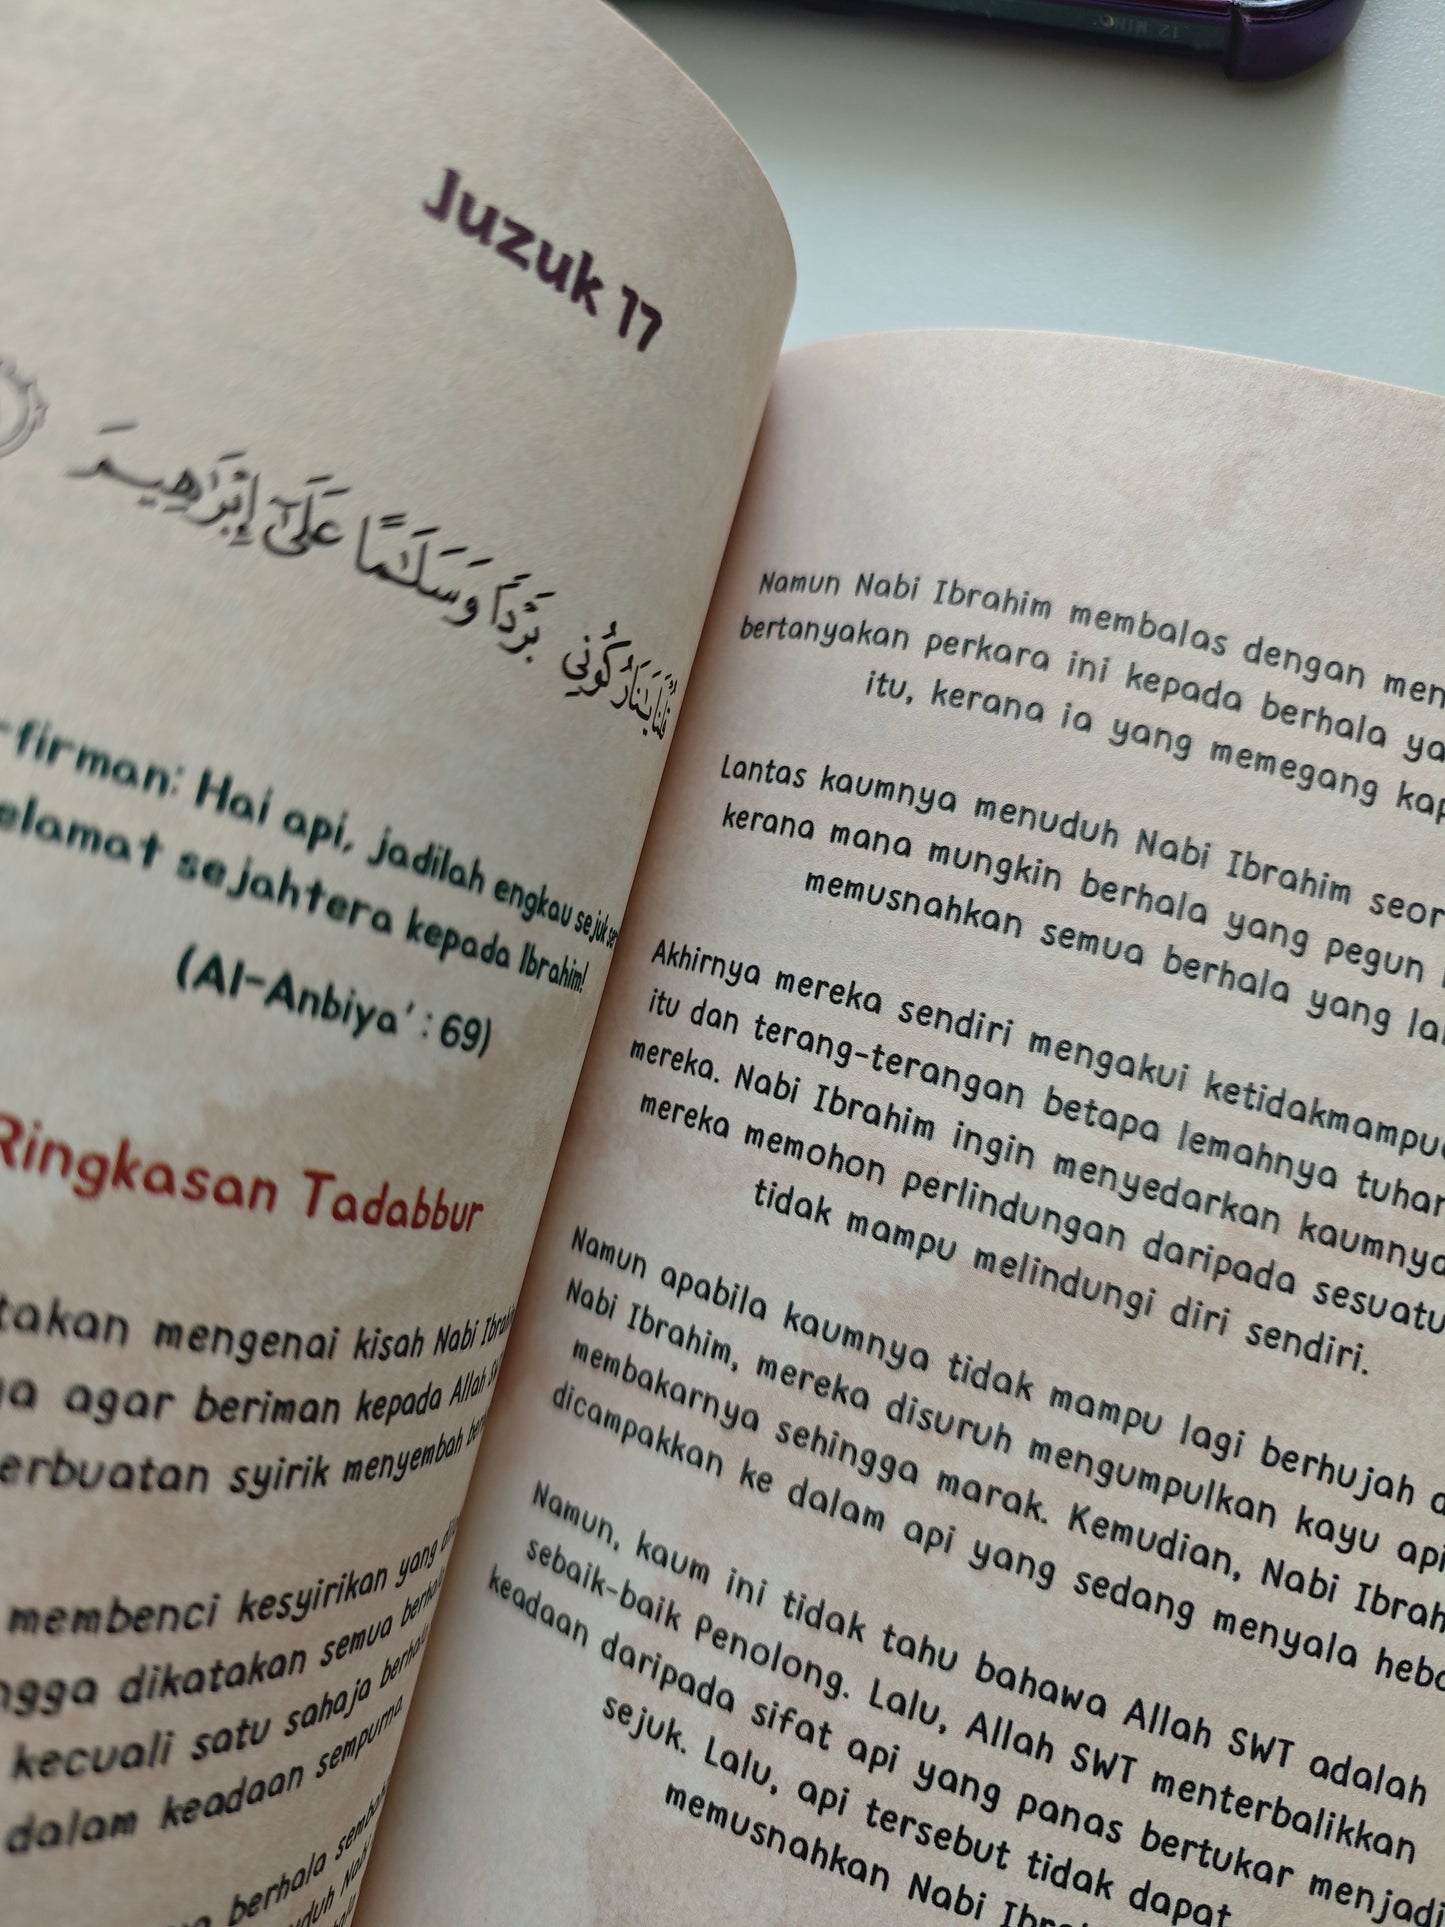 Juzuk 17
قُلْنَا يَـٰنَارُ كُونِى بَرْدًا وَسَلَـٰمًا عَلَىٰٓ إِبْرَٰهِيمَ
-firman: Hai api, jadilah engkau sejuk
elamat sejahtera kepada Ibrahim!
(Al-Anbiya' : 69)
Ringkasan Tadabbur
takan mengenai kisah Nabi
agar beriman kepada Allah
erbuatan syirik menyembah
membenci kesyirikan yang
ngga dikatakan semua
kecuali satu sahaja
dalam keadaan sempurna.
berhala
Namun Nabi Ibrahim membalas dengan men
bertanyakan perkara ini kepada berhala ya
itu, kerana ia yang memegang kap
Lantas kaumnya menuduh Nabi Ibrahim seor
kerana mana mungkin berhala yang pegun
memusnahkan semua berhala yang la
Akhirnya mereka sendiri mengakui ketidakmampu
itu dan terang-terangan betapa lemahnya tuhan
mereka. Nabi Ibrahim ingin menyedarkan kaumnya
mereka memohon perlindungan daripada sesuatu
tidak mampu melindungi diri sendiri.
Namun apabila kaumnya tidak mampu lagi berhujah
Nabi Ibrahim, mereka disuruh mengumpulkan kayu api
membakarnya sehingga marak. Kemudian, Nabi Ibrah
dicampakkan ke dalam api yang sedang menyala heba
Namun, kaum ini tidak tahu bahawa Allah SWT adalah
sebaik-baik Penolong. Lalu, Allah SWT menterbalikkan
keadaan daripada sifat api yang panas bertukar menjadi
sejuk. Lalu, api tersebut tidak dapat
memusnahkan Nabi